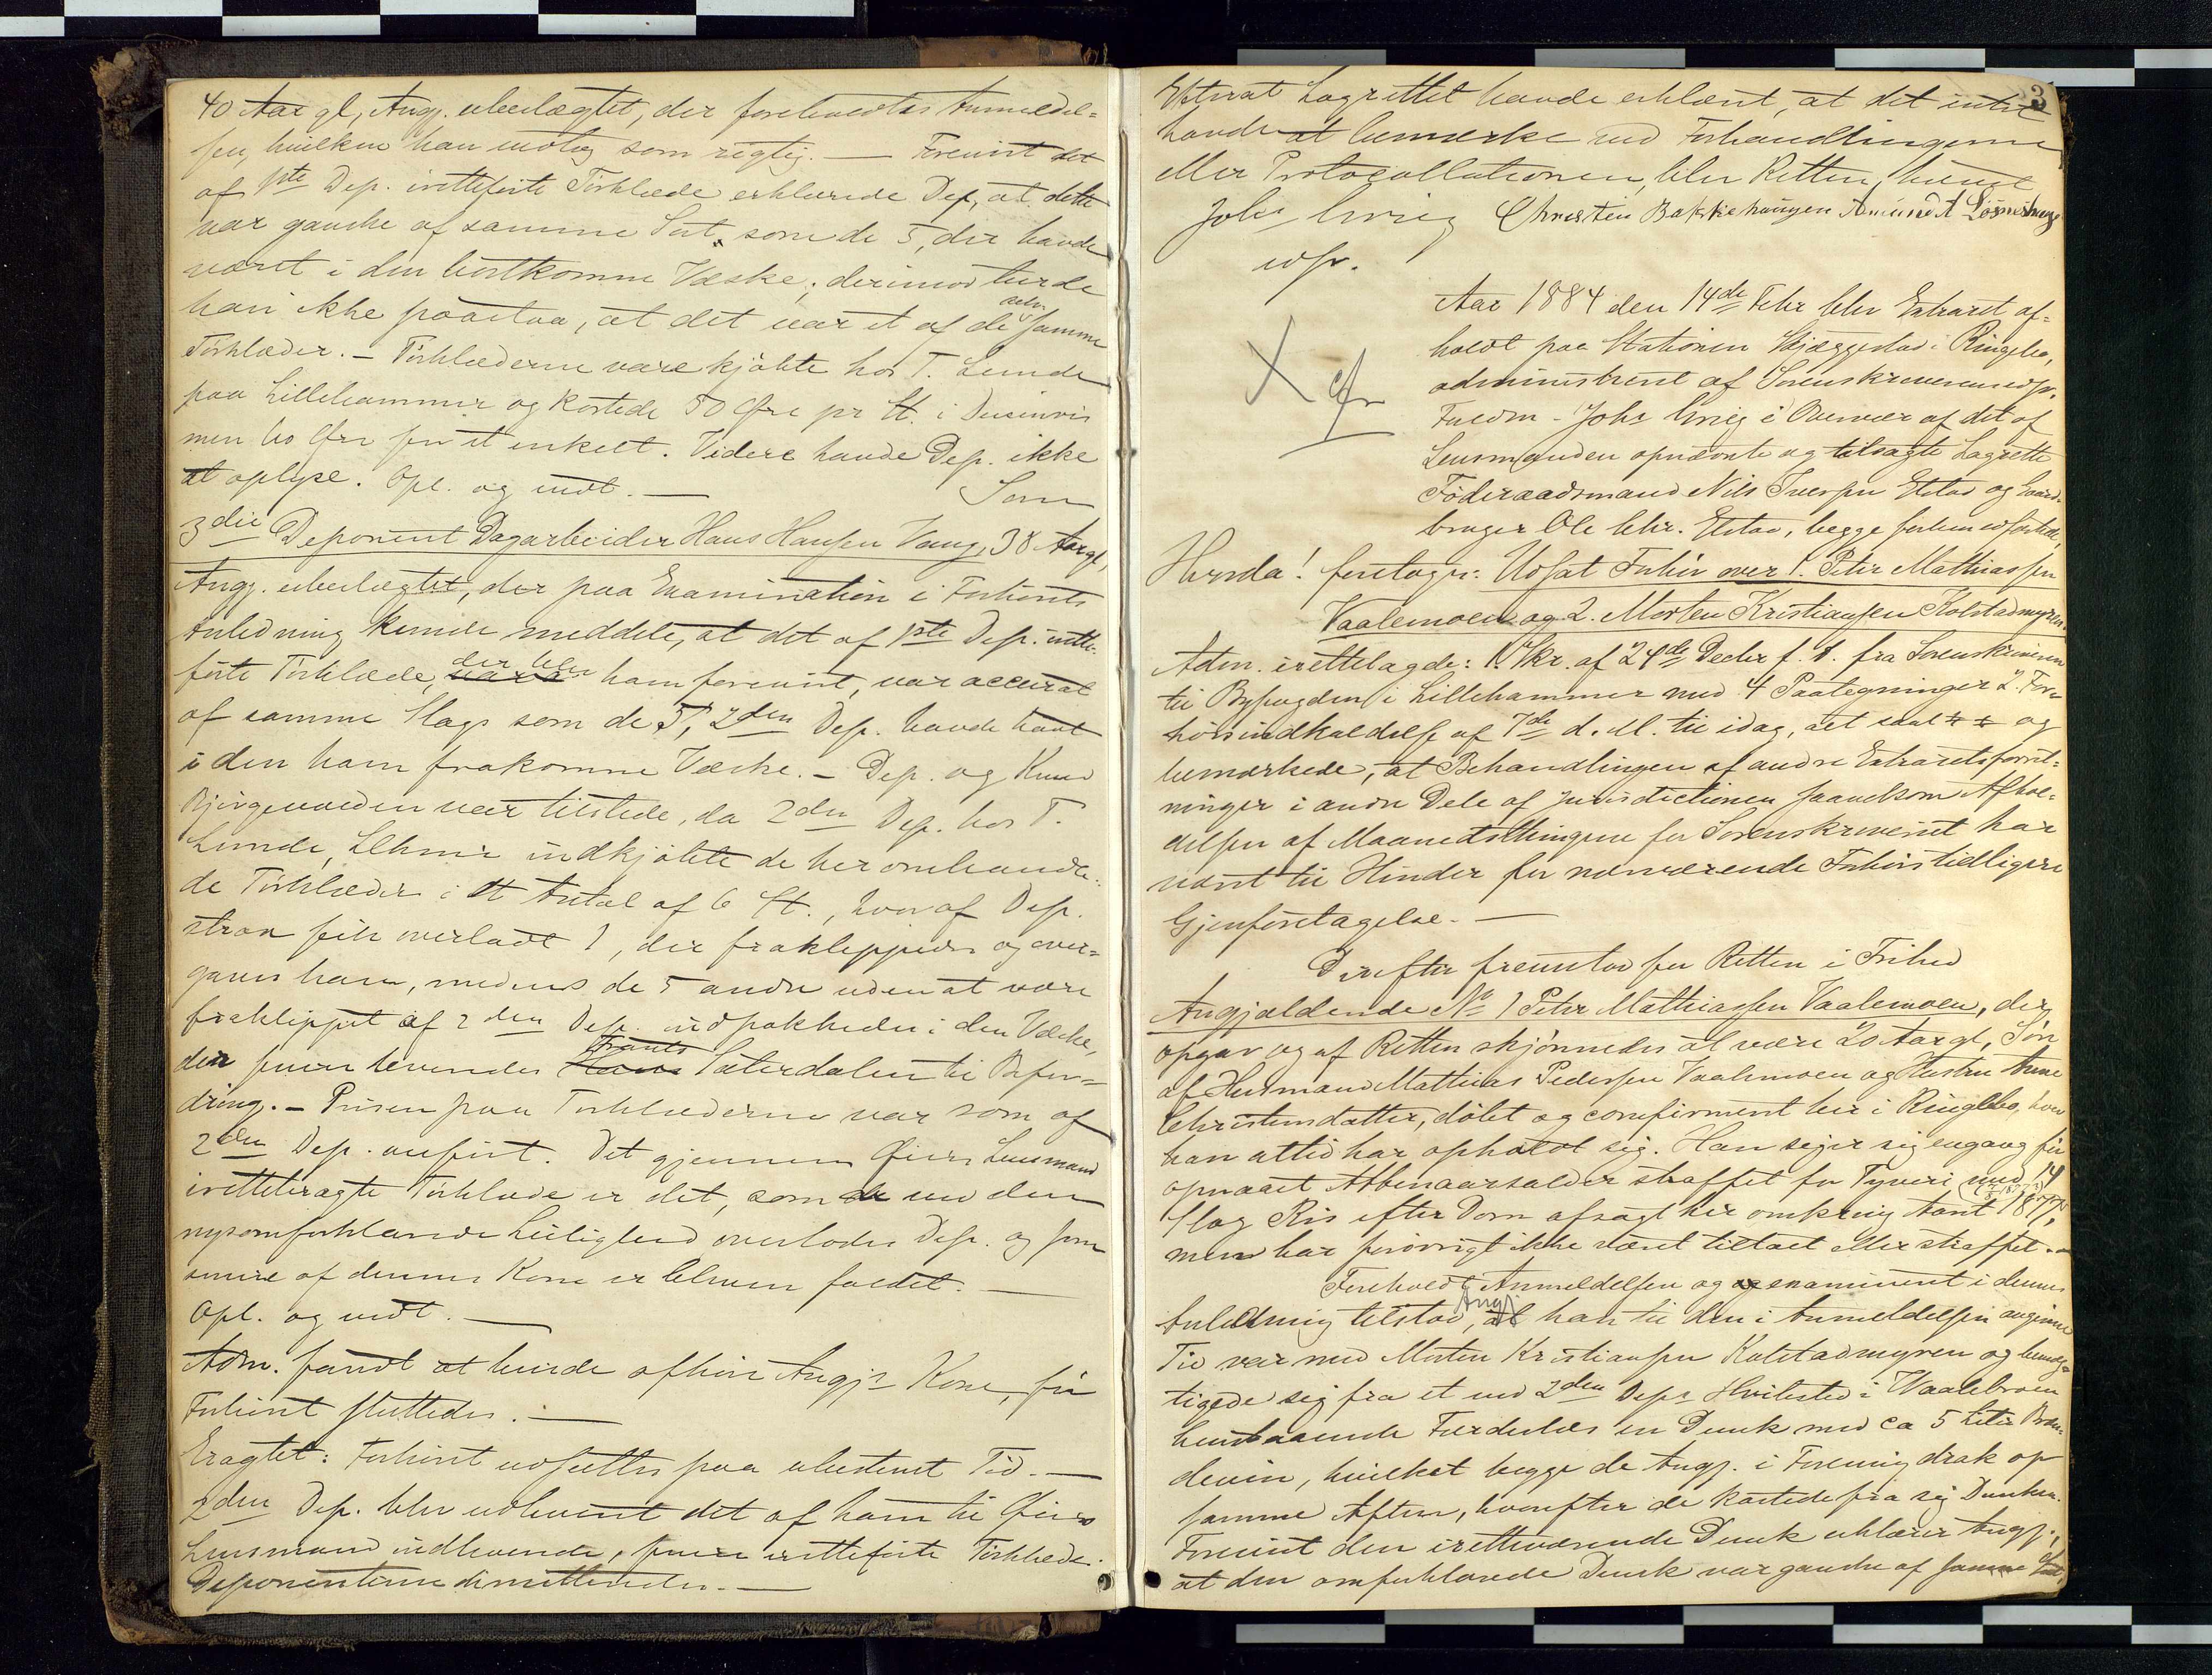 40 Aar gl, Angj. ubeslægtet, der foreholdtes Anmeldel-
sen, hvilken han vedtog som rigtig. — Forevist det
af 1ste Dep. iretteførte Tørklæde erklærede Dep., at dette
var ganske af samme Sort, som de 5, der havde
været i den bortkomne Væske; derimod turde
han ikke paastaa, at det var et af de selv samme
Tørklæder. – Tørklæderne vare kjøbte hos T. Lunde
paa Lillehammer og kostede 50 Øre pr St. i Dusinvis
men 60 Øre for et enkelt. Videre havde Dep. ikke
at oplyse. Opl. og vedt. — Som
3die Deponent Dagarbeider Hans Hansen Vang, 38 Aar gl,
Angj. ubeslægtet, der paa Examination i Forhørets
Anledning kunde meddele, at det af 1ste Dep. irette-
førte Tørklæde, der blev ham forevist, var accurat
af samme Slags som de 5, 2den Dep. havde havt
i den ham frakomne Væske. – Dep. og Knud
Bjørgemoeden var tilstede, da 2den Dep. hos T.
Lunde, Lhmr indkjøbte de heromhandle-
de Tørklæder i et Antal af 6 St., hvoraf Dep.
strax fik overladt 1, der fraklippedes og over-
gaves ham, medens de 5 andre uden at være
fraklippet af 2den Dep. indpakkedes i den Væske,
der senere leveredes Frants Sæterdalen til Befor-
dring. – Prisen paa Tørklæderne var som af
2den Dep. anført. Det gjennem Øiers Lensmand
irettebragte Tørklæde er det, som de ved den
nysomforklarede Leilighed overlodes Dep. og som
senere af dennes Kone er bleven faldet. —
Opl. og vedt. —
Adm. fandt at burde afhøre Angj.s Kone, før
Forhøret sluttedes. —
Eragtet: Forhøret udsættes paa ubestemt Tid. —
2den Dep. blev udleveret det af ham til Øiers
Lensmand indleverede, senere iretteførte Tørklæde.
Deponenterne dimitteredes. —
3
Efterat Lagrettet havde erklæret, at det intet
havde at bemærke ved Forhandlingerne
eller Protocollationen, blev Retten hævet
Johs Grieg Christen Bakkehaugen Amund A Løsneshauge
edsv.
Aar 1884 den 14de Febr blev Extraret af-
holdt paa Stationen Skjæggestad i Ringebo,
administreret af Sorenskriverens edsv.
Fuldm. Johs Grieg i Overvær af det af
Lensmanden opnævnte og tilsagte Lagrette
Føderaadsmand Nils Iversen Elstad og Gaard-
bruger Ole Chr. Elstad, begge forhen edfæstede,
X cfr
Hvorda! foretoges: Udsat Forhør over 1. Peter Mathiassen
Vaalemoen og 2. Morten Kristiansen Kolstadmyren.
Adm. irettelagde: 1. Skr. af 24de Decbr f. A. fra Sorenskriveren
til Byfogden i Lillehammer med 4 Paategninger 2. For-
hørsindkaldelse af 7de d. M. til idag, alt saal. og
bemærkede, at Behandlingen af andre Extraretsforret-
ninger i andre Dele af Jurisdictionen saavelsom Afhol-
delsen af Maanedsthingene for Sorenskriveriet har
været til Hinder for nærværende Forhørs tidligere
Gjenforetagelse. —
Derefter fremstod for Retten i Frihed
Angjældende No 1 Peter Mathiassen Vaalemoen, der
opgav og af Retten skjønnedes at være 20 Aar gl, Søn
af Husmand Mathias Pedersen Vaalemoen og Hustru Anne
Christensdatter, døbt og confirmeret her i Ringebo, hvor
han altid har opholdt sig. Han siger sig engang før
opnaaet Atbenaarsalder straffet for Tyveri med 14
Slag Ris efter Dom afsagt her omkring Aaret 1877,
men har forøvrigt ikke været tiltalt eller straffet. –
Foreholdt Anmeldelsen og examineret i dennes
Anledning tilstod Angj, at han til den i Anmeldelsen angivne
Tid var med Morten Kristiansen Kolstadmyren og bemæg-
tigede sig fra et ved 2den Deps Hvilested i Vaalebroen
henstaaende Færdeslæs en Dunk med ca 5 Liter Bræn-
devin, hvilket begge de Angj. i Forening drak op
samme Aften, hvorefter de kastede fra sig Dunken.
Forevist den iretteværende Dunk erklærer Angj.,
at den omforklarede Dunk var ganske af samme Sort,